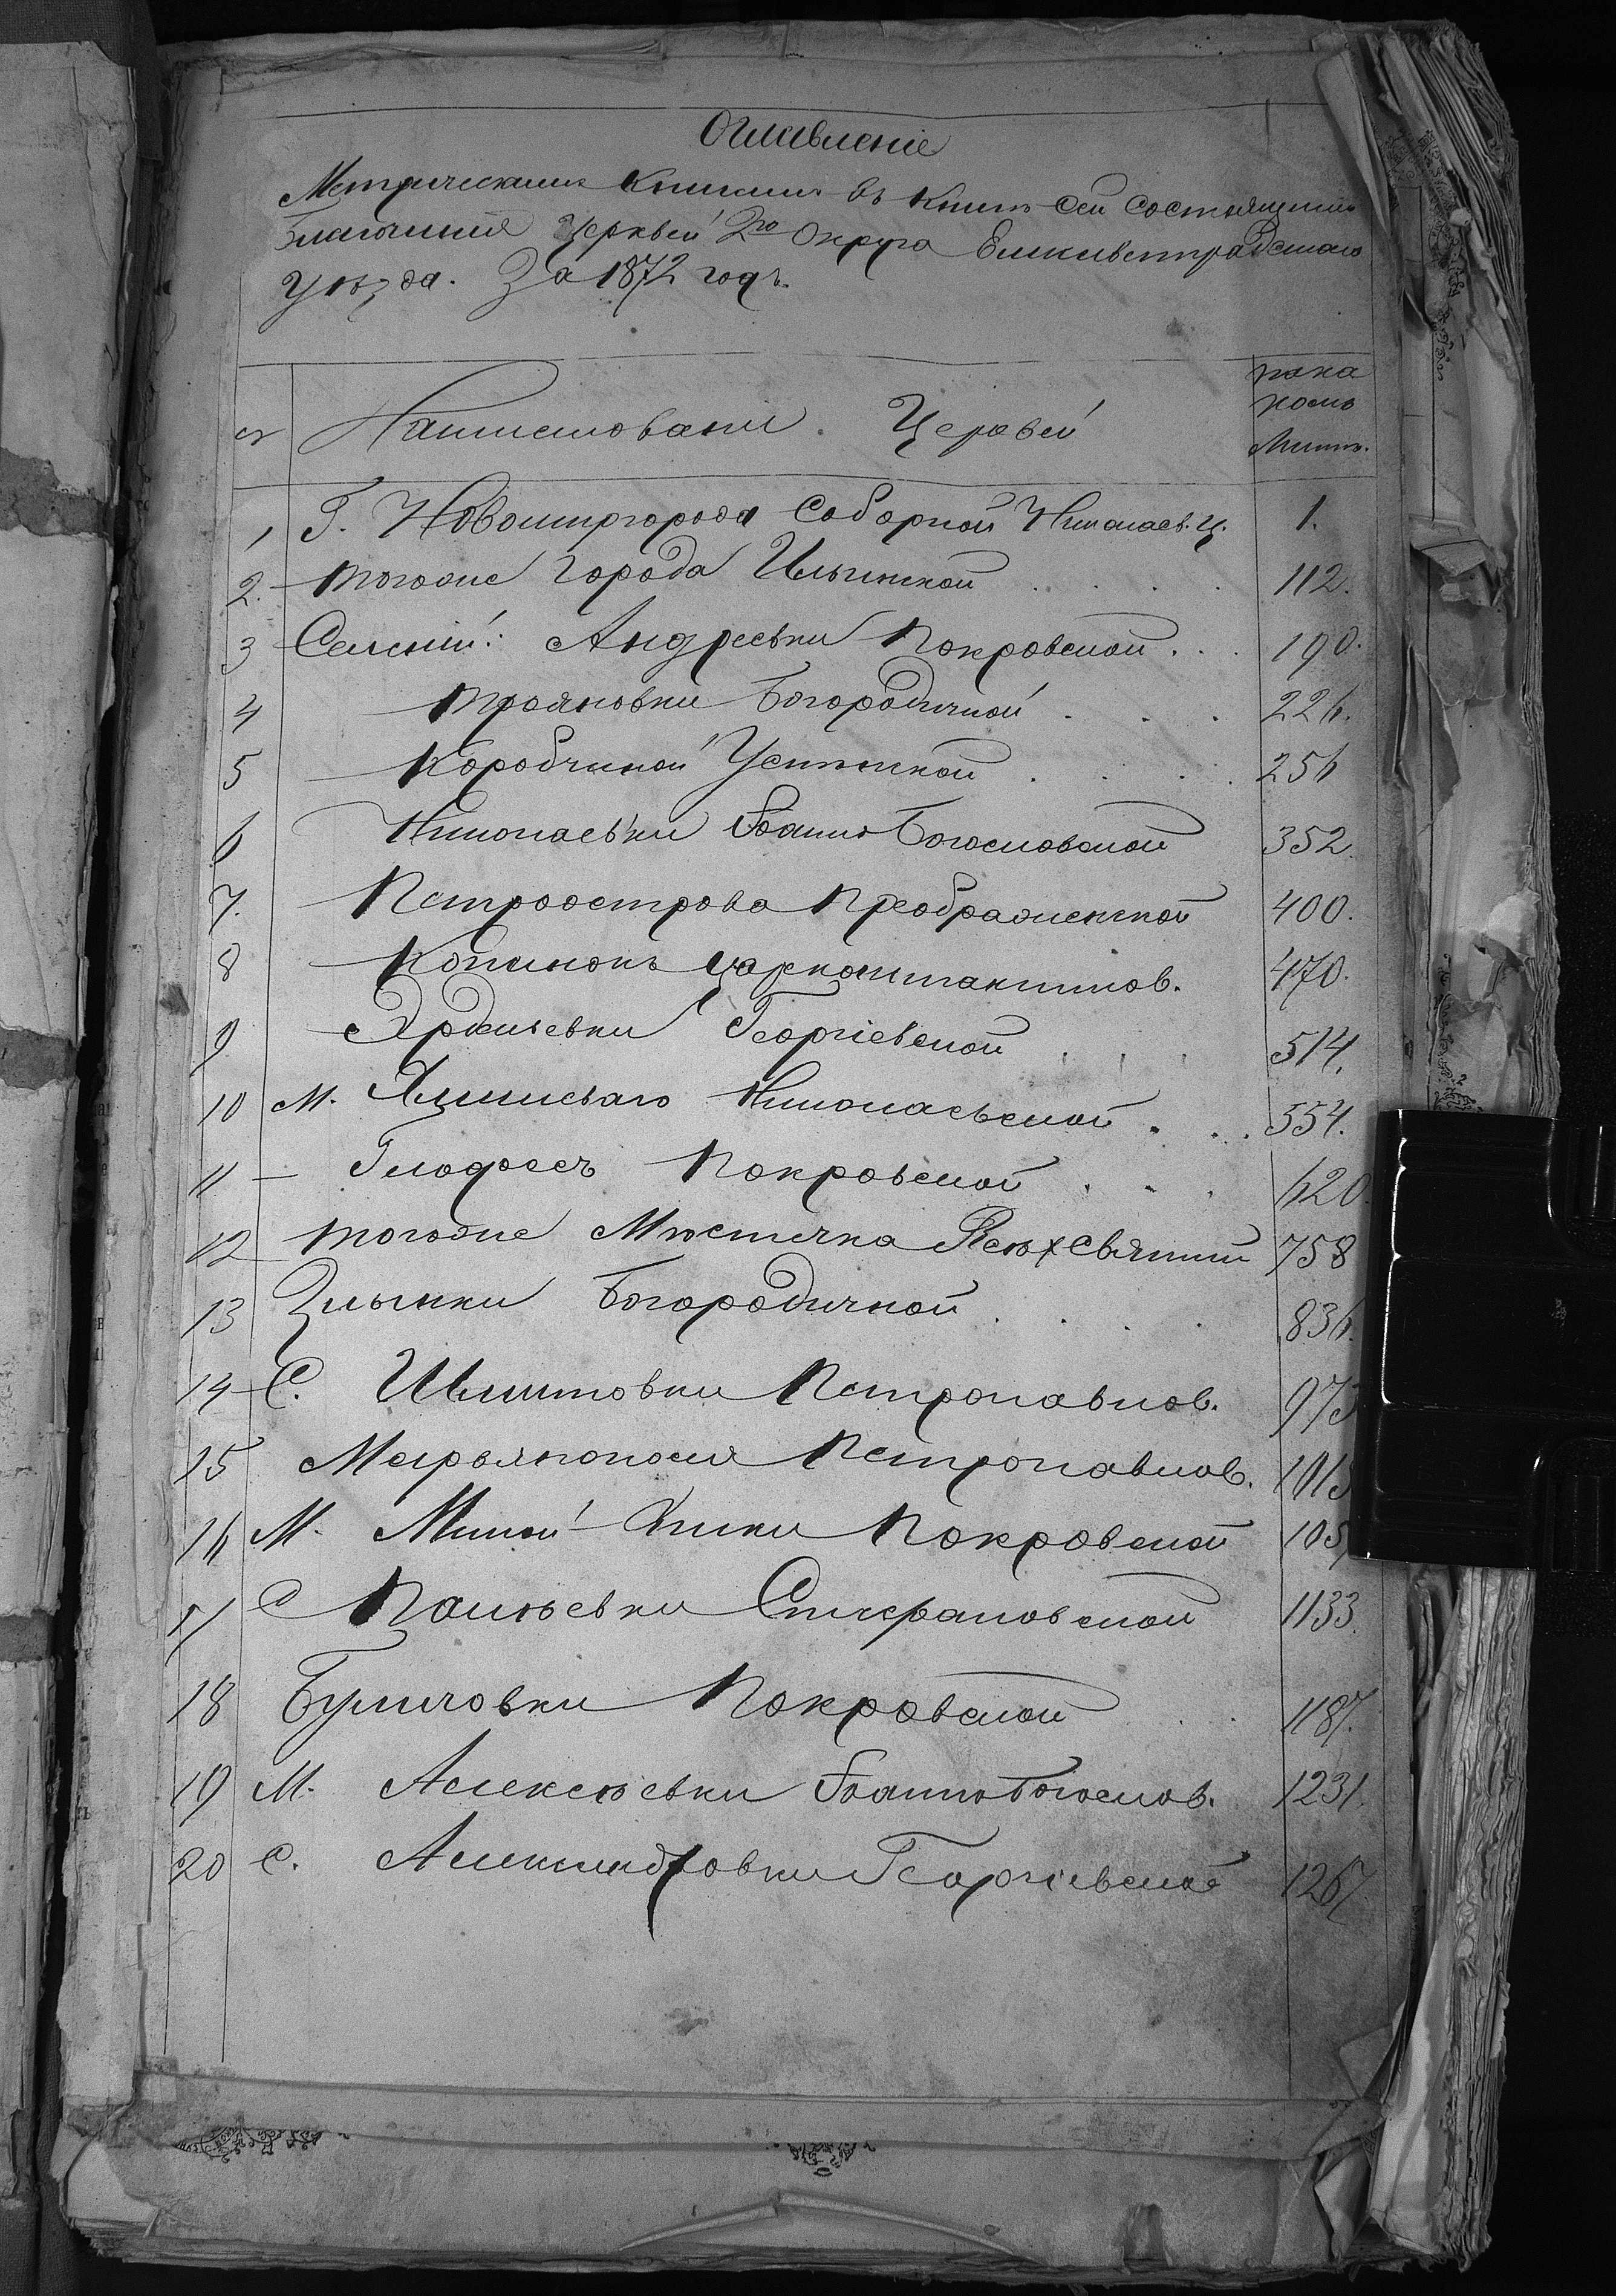 Оглавленіе
Метрическимъ Книгамъ въ Книгѣ сей состоящимъ
Благочинія Церквей 2го Округа Елисаветградскаго
уѣзда. За 1872 годъ.
№ Наименованіе Церквей на комъ листѣ.
1 Г. Новомиргорода Соборной Николаев. ц. 1.
2. Тогоже города Ильинской 112.
3 Селеній: Андреевки Покровской 190.
4 Трояновки Богородичной 226.
5 Коробчиной Успенской 256
6 Николаевки Іоанно Богословской 352.
7. Петроострова Преображенской 400.
8 Копанокъ Царконстантинов. 470.
9 Эрделевки Георгіевской 514.
10 М. Хмѣлеваго Николаевской 554.
11 — Глодосъ Покровской 620.
12 тогоже Мѣстечка Всѣхсвятской 758
13 Злынки Богородичной 836.
14 С. Петропавлов. 973
15 Марьянополя Петропавлов. 1013
16 М. Малой-Виски Покровской 105
17 С Паліевки Стефановской 1133.
18 Покровской 1187.
19 М. Алексѣевки Іоанно Богослов. 1231.
20 С. Александровки Георгіевской 1267.